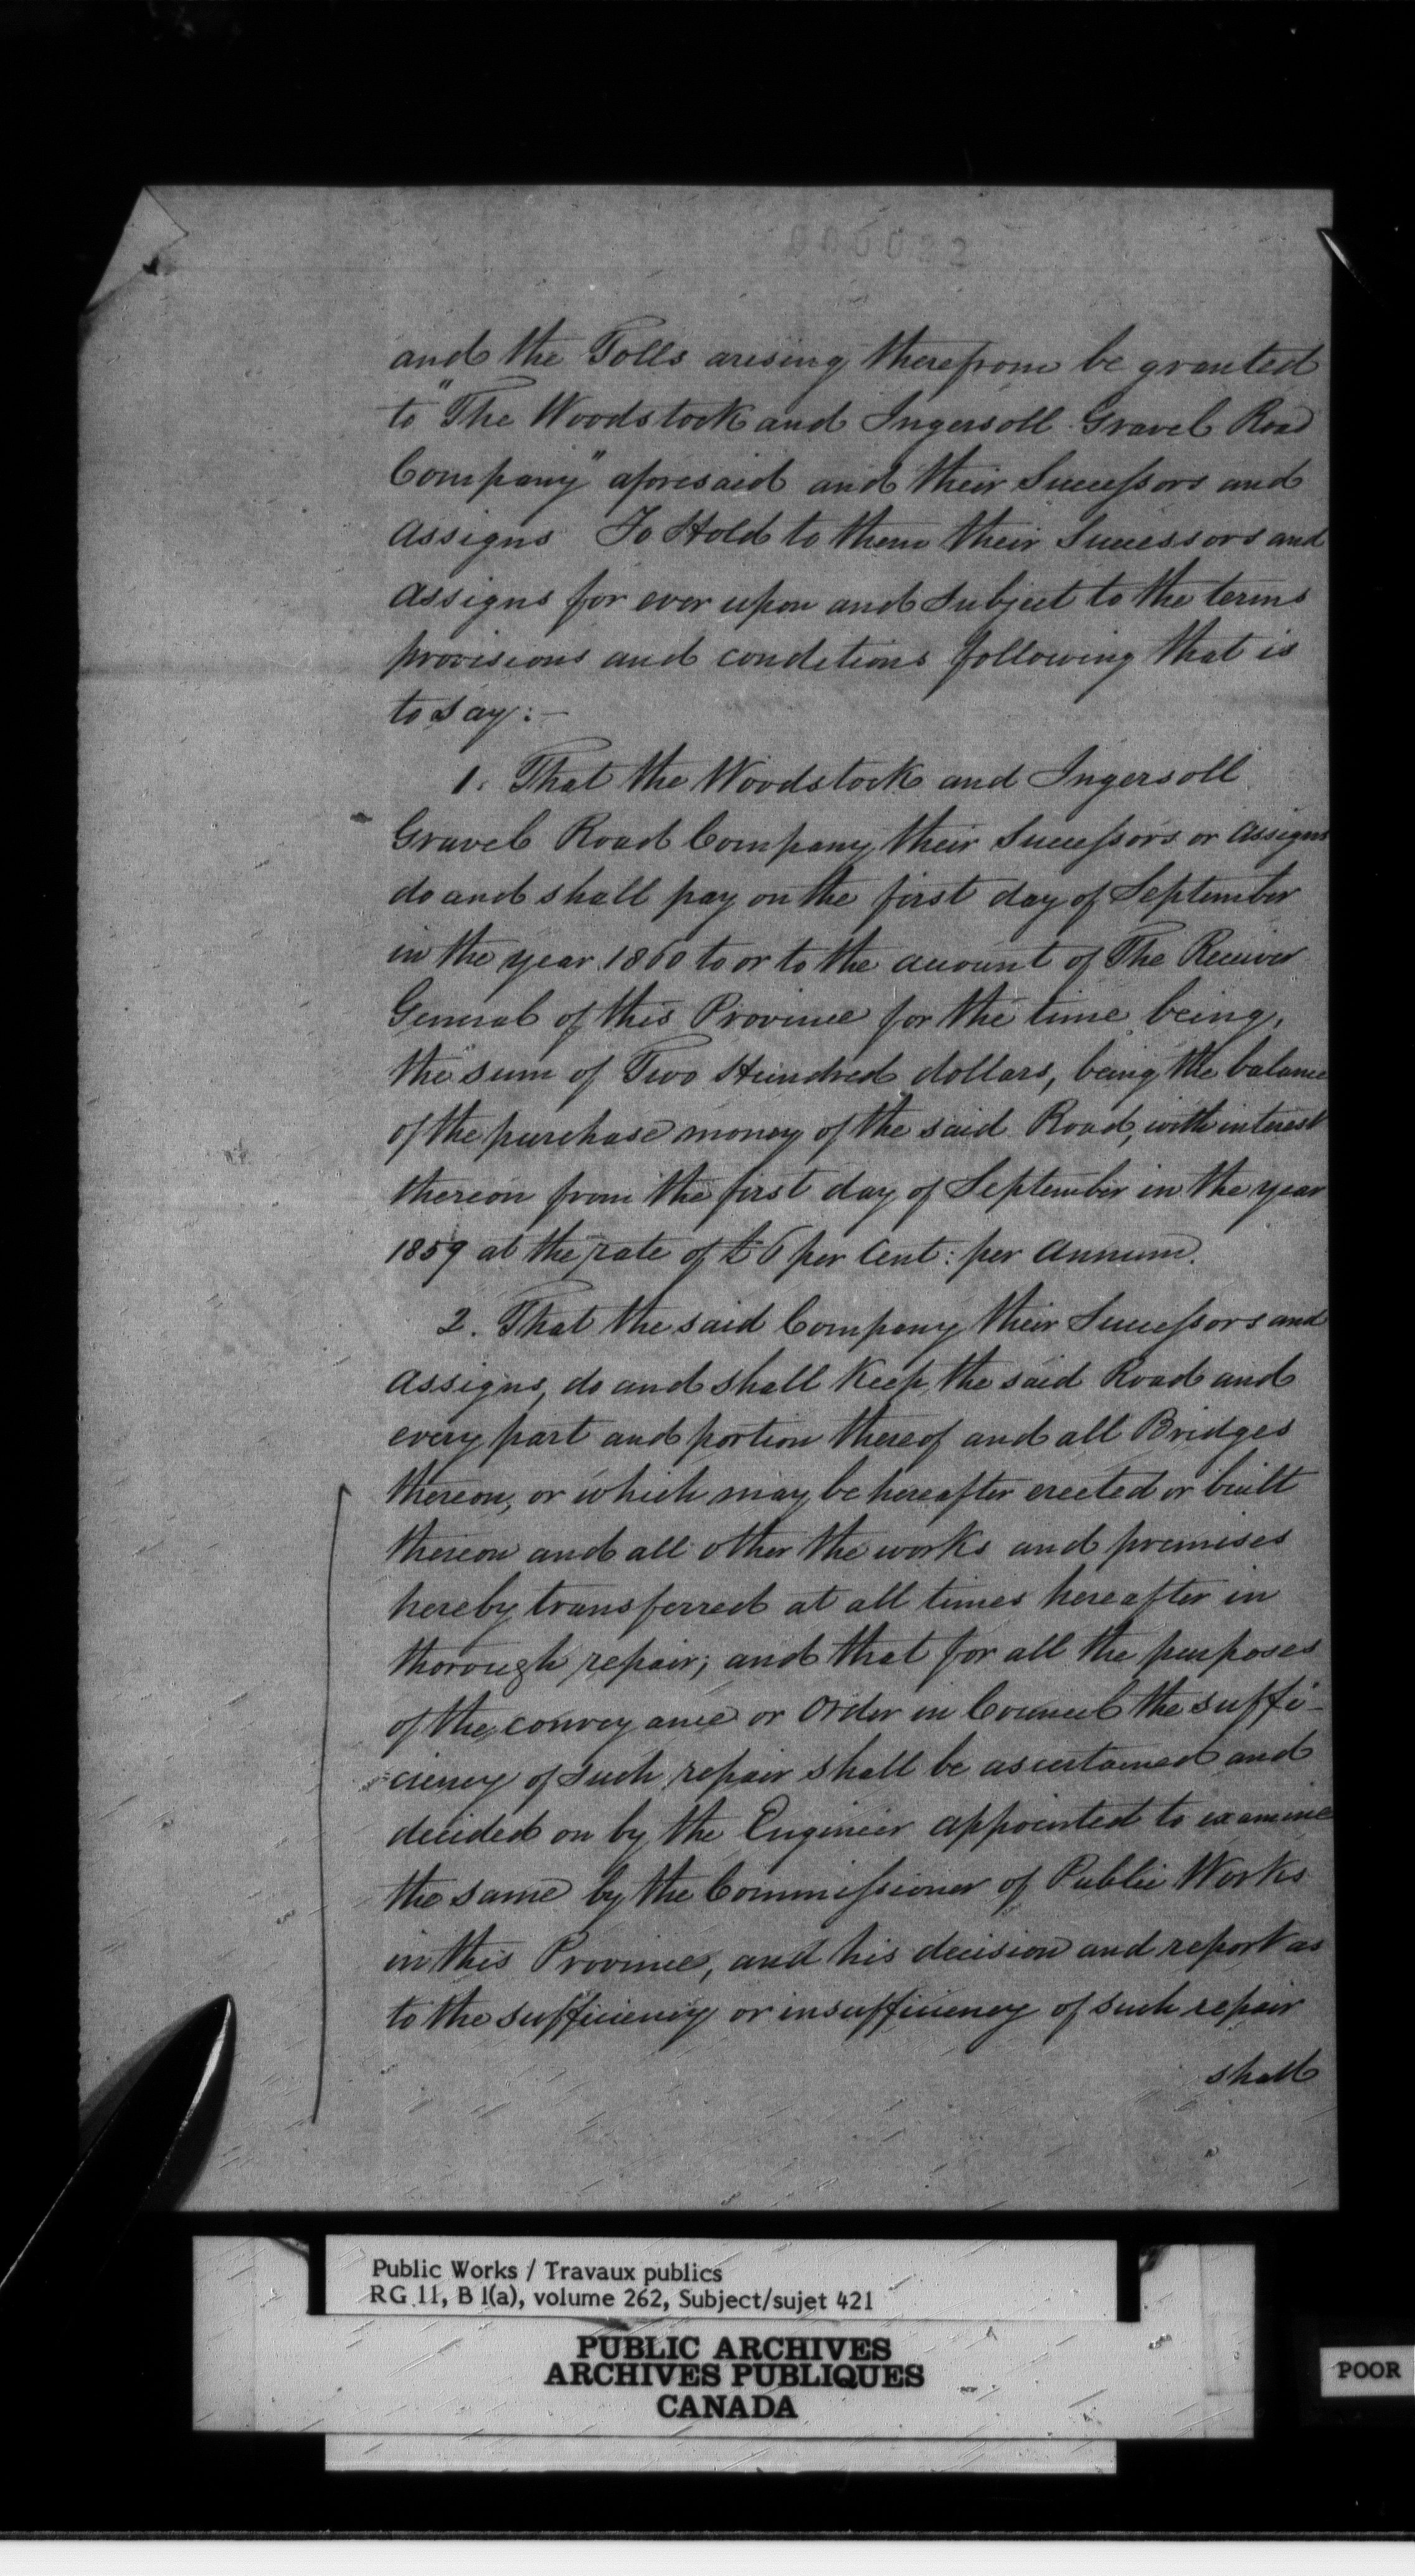 000022
and the Tolls arising therefrom be granted
to "The Woodstock and Ingersoll Gravel Road
Company" aforesaid and their Successors and
Assigns To Hold to them their Successors and
Assigns for ever upon and Subject to the terms
provisions and conditions following that is
to say:—
1. That the Woodstock and Ingersoll
Gravel Road Company, their Successors or Assigns
do and shall pay on the first day of September
in the year 1860 to or to the account of The Receiver
General of this Province for the time being,
the sum of Two Hundred dollars, being the balance
of the purchase money of the said Road, with interest
thereon from the first day of September in the year
1859 at the rate of £6 per Cent: per Annum.
2. That the said Company their Successors and
Assigns, do and shall Keep the said Road and
every part and portion thereof and all Bridges
thereon, or which may be hereafter erected or built
thereon and all other the works and premises
hereby transferred at all times hereafter in
thorough repair; and that for all the purposes
of the conveyance or Order in Council the suffi-
ciency of such repair shall be ascertained and
decided on by the Engineer appointed to examine
the same by the Commissioner of Public Works
in this Province, and his decision and report as
to the sufficiency or insufficiency of such repair
shall
Public Works / Travaux publics
RG 11, B 1(a), volume 262, Subject/sujet 421
PUBLIC ARCHIVES
ARCHIVES PUBLIQUES
CANADA
POOR